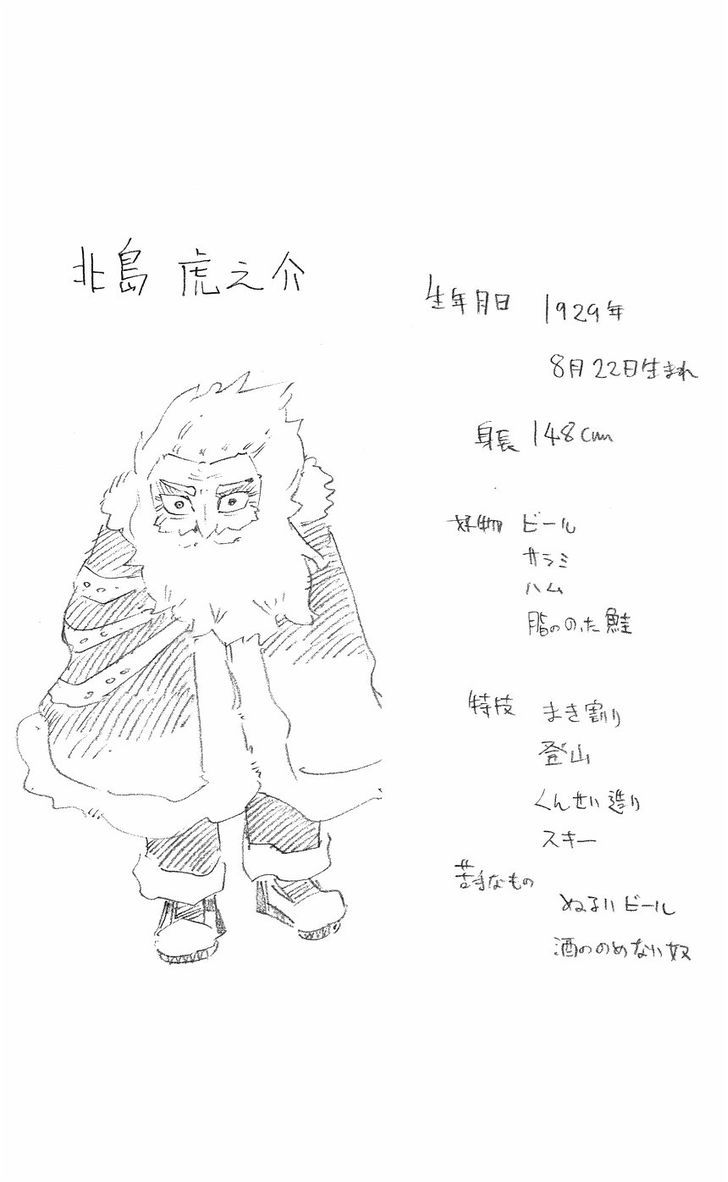 北島 虎之介
生年月日 1929年
8月22日生まれ
身長 148cm
好物 ビール
サラミ
ハム
脂ののった鮭
特技 まき割り
登山
くんせい造り
スキー
苦手なもの
ぬるいビール
酒ののめない奴